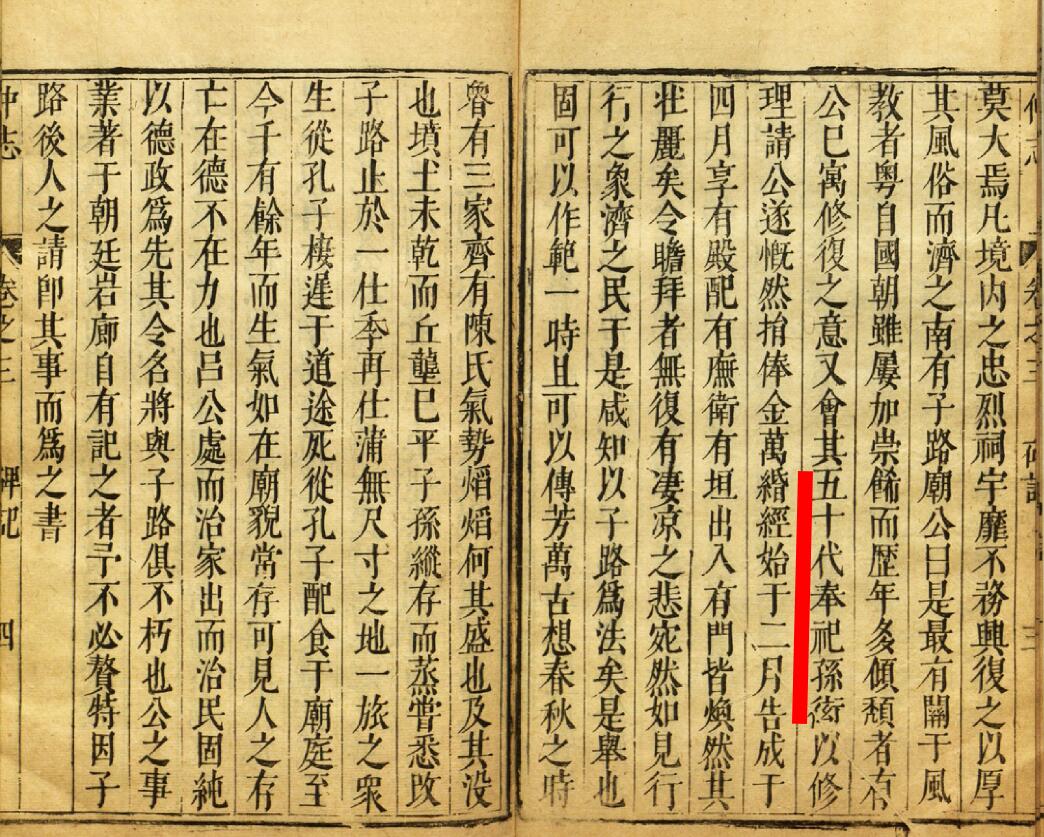 莫大焉凡境内之忠烈祠宇靡不務興復之以厚
其風俗而濟之南有子路廟公曰是最有關于風
教者粵自國朝雖屢加崇餙而歴年多傾頽者有
公巳寓修復之意又會其五十代奉祀孫銜以修
理請公遂慨然捐俸金萬緡經始于二月告成于
四月享有殿配有廡衛有垣出入有門皆煥然其
壮麗矣令瞻拜者無復有凄凉之悲宛然如見行
行之象濟之民于是咸知以子路爲法矣是舉也
固可以作範一時且可以傳芳萬古想春秋之時
魯有三家齊有陳氏氣勢熖熖何其盛也及其没
也墳土未乾而丘壟巳平子孫縱存而蒸嘗悉改
子路止於一仕季再仕蒲無尺寸之地一旅之衆
生從孔子棲遲于道途死從孔子配食于廟庭至
今千有餘年而生氣如在廟貌常存可見人之存
亡在德不在力也吕公處而治家出而治民固純
以德政爲先其令名將與子路俱不朽也公之事
業著于朝廷岩廊自有記之者予不必贅特因子
路後人之請卽其事而爲之書
仲志 卷之三 碑記 四